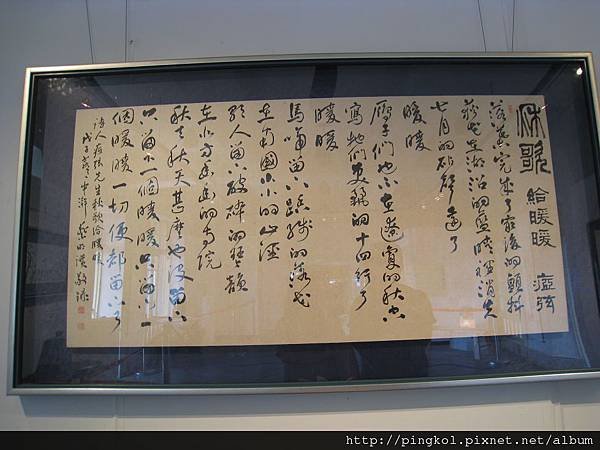 秋歌 給暖暖 瘂弦
落葉完成了最後的顫抖
荻花在湖沼的藍睛裡消失
七月的砧聲遠了
暖暖
雁子們也不在遼夐的秋空
寫牠們美麗的十四行了
暖暖
馬蹄留下踏殘的落花
在南國小小的山徑
歌人留下破碎的琴韻
在北方幽幽的寺院
秋天秋天甚麼也沒留下
只留下一個暖暖只留下一
個暖暖一切便都留下了
詩人瘂弦先生秋歌給暖暖
戊子 中澣 明漢敬錄
http://pingkol.pixnet.net/album